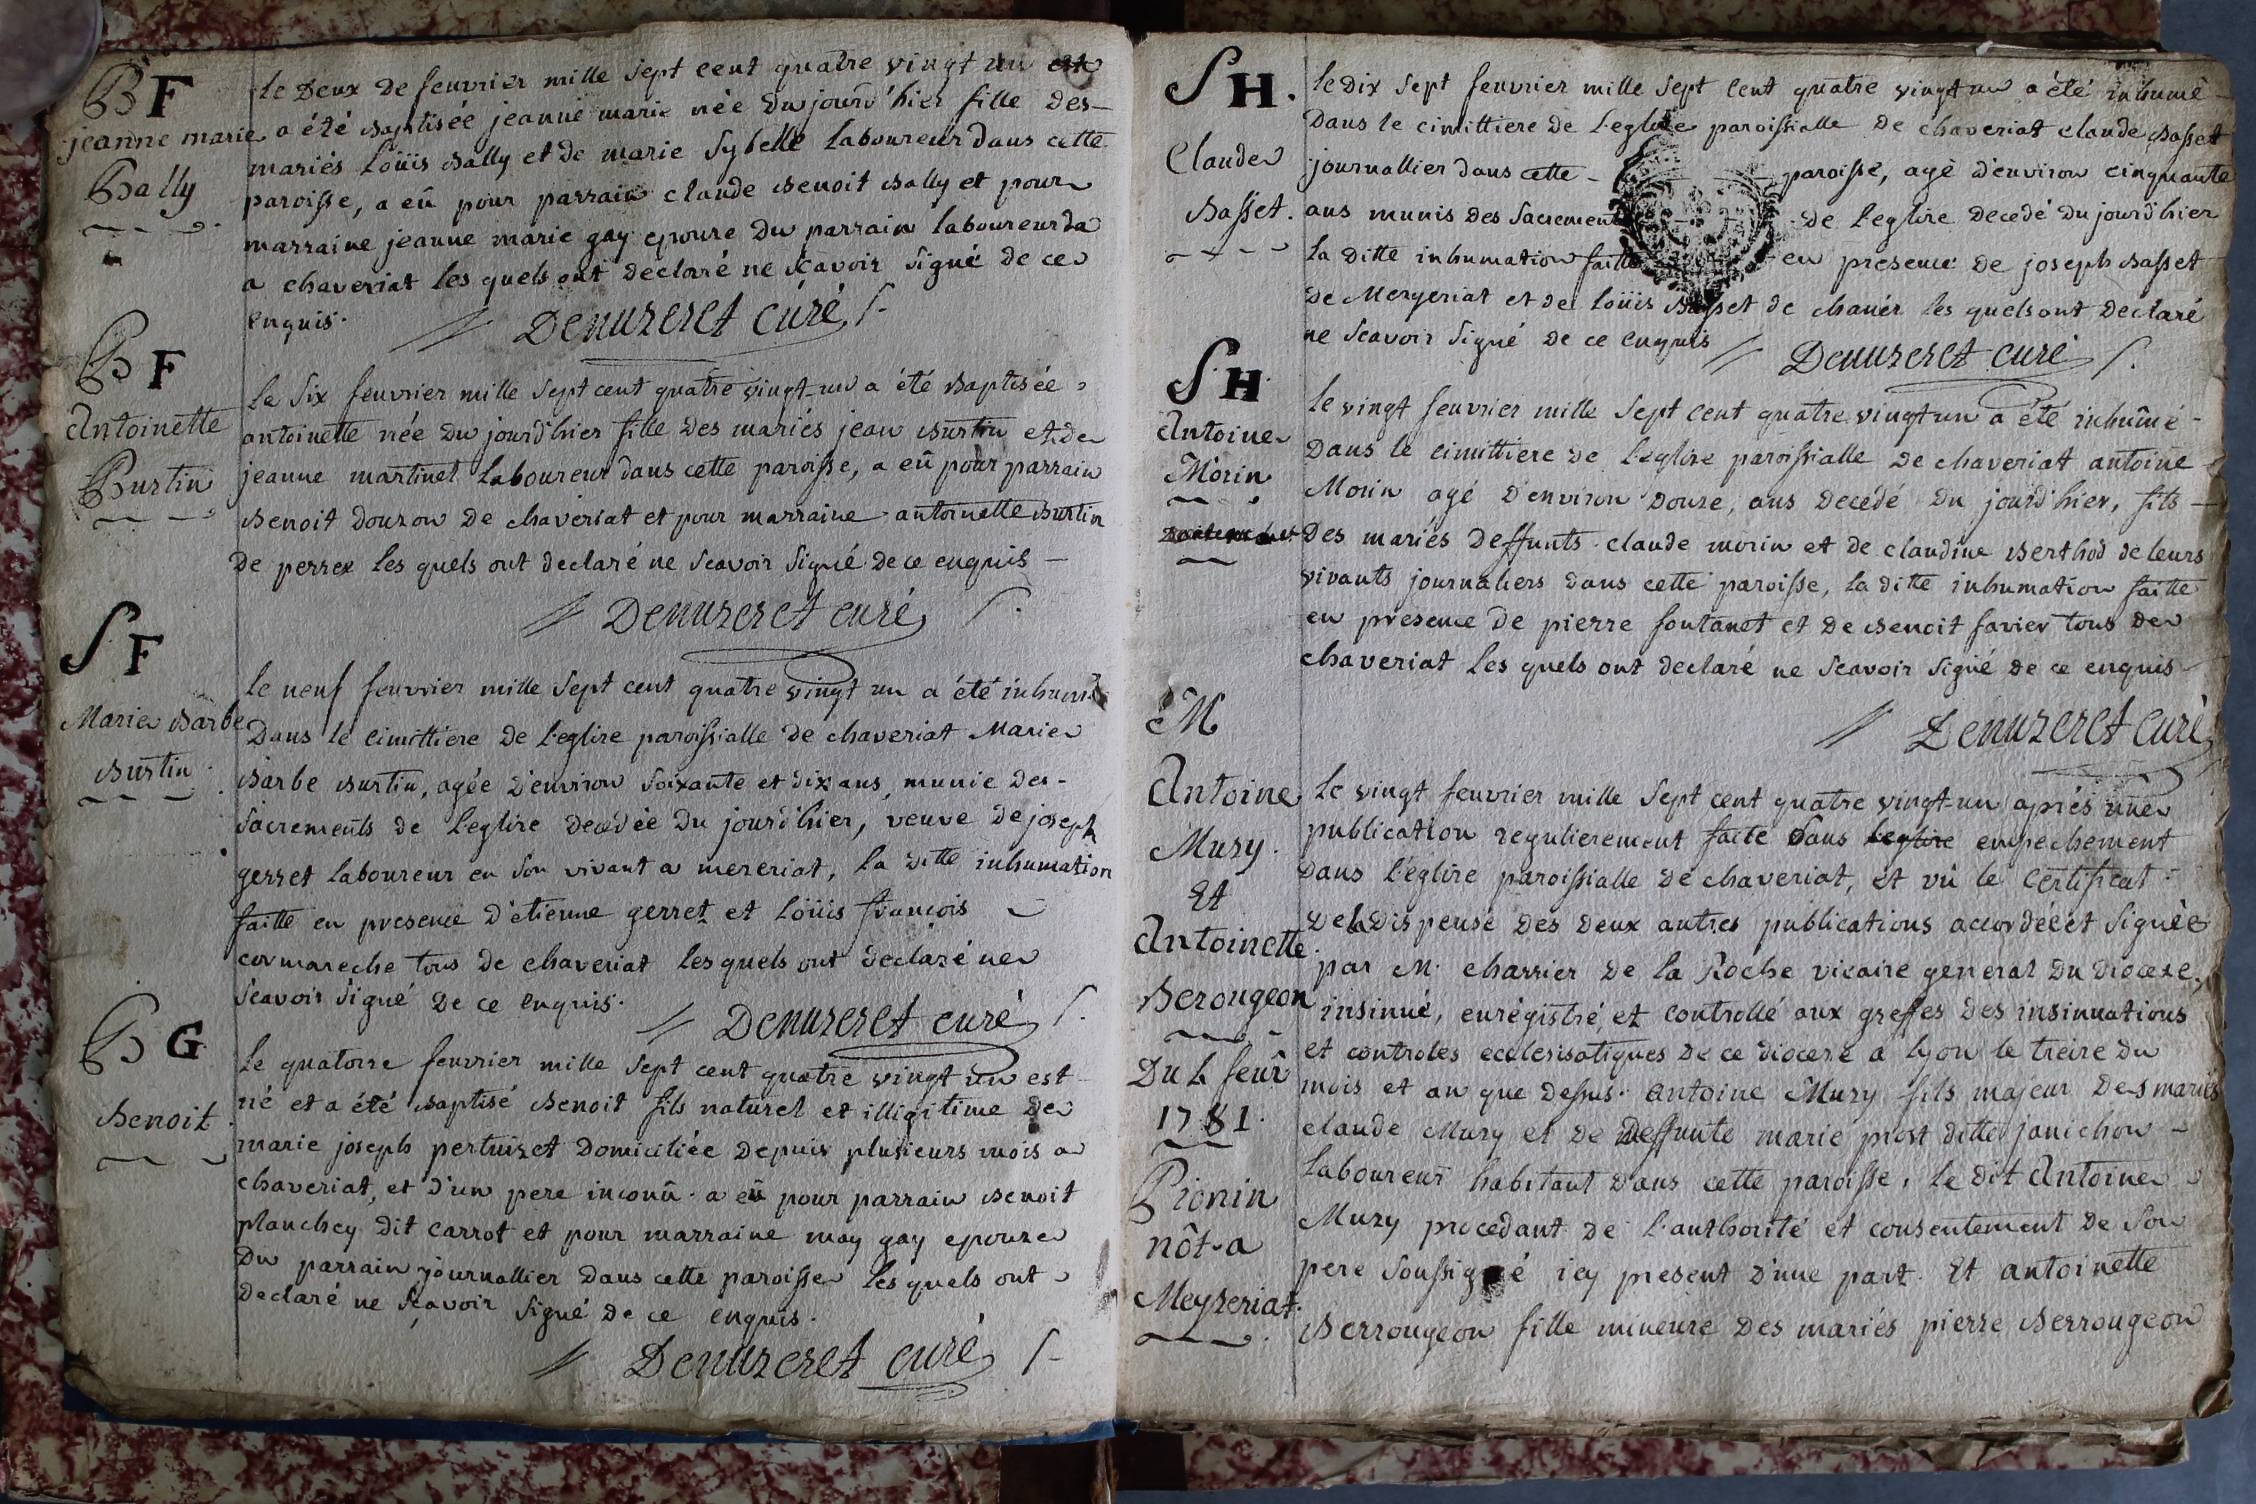 BF
jeanne marie
Bally
le Deux de feuvrier mille sept cent quatre vingt un
a été Baptisée jeanne marie née Du jourd'hier fille des
mariés Loüis Bally et de marie Sybelle Laboureur dans cette
paroisse, a eû pour parrain claude Benoit Bally et pour
marraine jeanne marie gay epouse Du parrain laboureur da
a chaveriat les quels ont declaré ne scavoir signé de ce
enquis.
Denuzeret curé
BF
Antoinette
Burtin
le six feuvrier mille sept cent quatre vingt-un a été Baptisée
antoinette née Du jourd'hier fille des mariés jean Burtin et de
jeanne martinet Laboureur dans cette paroisse, a eû pour parrain
Benoit douzon de chaveriat et pour marraine antoinette Burtin
de perrex les quels ont declaré ne scavoir signé de ce enquis
Denuzeret curé
SF
Marie Barbe
Burtin
le neuf feuvrier mille sept cent quatre vingt un a été inhumé
Dans le cimittiere de l'eglise paroissialle de chaveriat Marie
Barbe Burtin, agée d'environ soixante et dix ans, munie des
sacrements de l'eglise decedée Du jourd'hier, veuve de joseph
gerret laboureur en son vivant a mezeriat, la ditte inhumation
faitte en presence d'etienne gerret et Loüis françois
cormareche tous de chaveriat les quels ont declaré ne
scavoir signé de ce enquis.
Denuzeret curé
BG
Benoit
le quatorze feuvrier mille sept cent quatre vingt un est
né et a été Baptisé Benoit fils naturel et illigitime de
marie joseph pertuizet Domiciliée depuis plusieurs mois a
chaveriat, et d'un pere inconû. a eû pour parrain Benoit
planchey dit carrot et pour marraine may gay epouze
Du parrain journallier dans cette paroisse les quels ont
declaré ne scavoir signé de ce enquis.
Denuzeret curé
SH.
Claude
Basset.
le dix sept feuvrier mille sept cent quatre vingt un a été inhumé
Dans le cimittiere de l'eglise paroissialle de chaveriat claude Basset
journallier dans cette paroisse, agé d'environ cinquante
ans munis des sacrements de l'eglise decedé Du jourd'hier
la ditte inhumation faitte en presence de joseph Basset
de Mezyeriat et de Loüis Basset de chavér les quels ont declaré
ne scavoir signé de ce enquis
Denuzeret curé
SH
Antoine
Morin
le vingt feuvrier mille sept cent quatre vingt un a été inhûmé
Dans le cimittiere de l'eglise paroissialle de chaveriat antoine
Morin agé d'environ douze, ans decedé du jourd'hier, fils
Des mariés deffunts claude morin et de claudine Berthod de leurs
vivants journaliers dans cette paroisse, la ditte inhumation faitte
en presence de pierre fontanet et de Benoit favier tous de
chaveriat les quels ont declaré ne scavoir signé de ce enquis
Denuzeret curé
M
Antoine
Muzy.
Et
Antoinette
Berougeon
Du 6 feûr
1781.
Pionin
nôt. a
Meyzeriat.
le vingt feuvrier mille sept cent quatre vingt-un après une
publication regulierement faite sans l'eglise empechement
dans l'eglise paroissialle de chaveriat, et vû le certificat
de la dispense des deux autres publications accordée et signée
par M. charrier de la Roche vicaire general du diocese,
insinué, enrégistré, et controllé aux greffes des insinuations
et controles ecclesisatiques de ce diocese a lyon le treize du
mois et an que dessus. antoine Muzy fils majeur des mariés
claude Muzy et de deffunte marie prost ditte janichon
Laboureur habitant dans cette paroisse, le dit Antoine
Muzy procedant de l'authorité et consentement de son
pere soussigné icy present d'une part. Et antoinette
Berrougeon fille mineure des mariés pierre Berrougeon